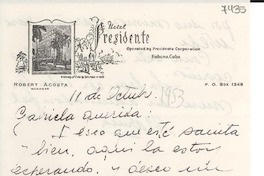 7435
Hotel
Presidente
Operated by Presidente Corporation
Habana, Cuba
ROBERT ACOSTA
MANAGER
P. O. BOX 1348
11 de Octub.
1953
Gabriela querida:
Creo que esté sanita
y bien, aquí la estoy
esperando, y deseo un